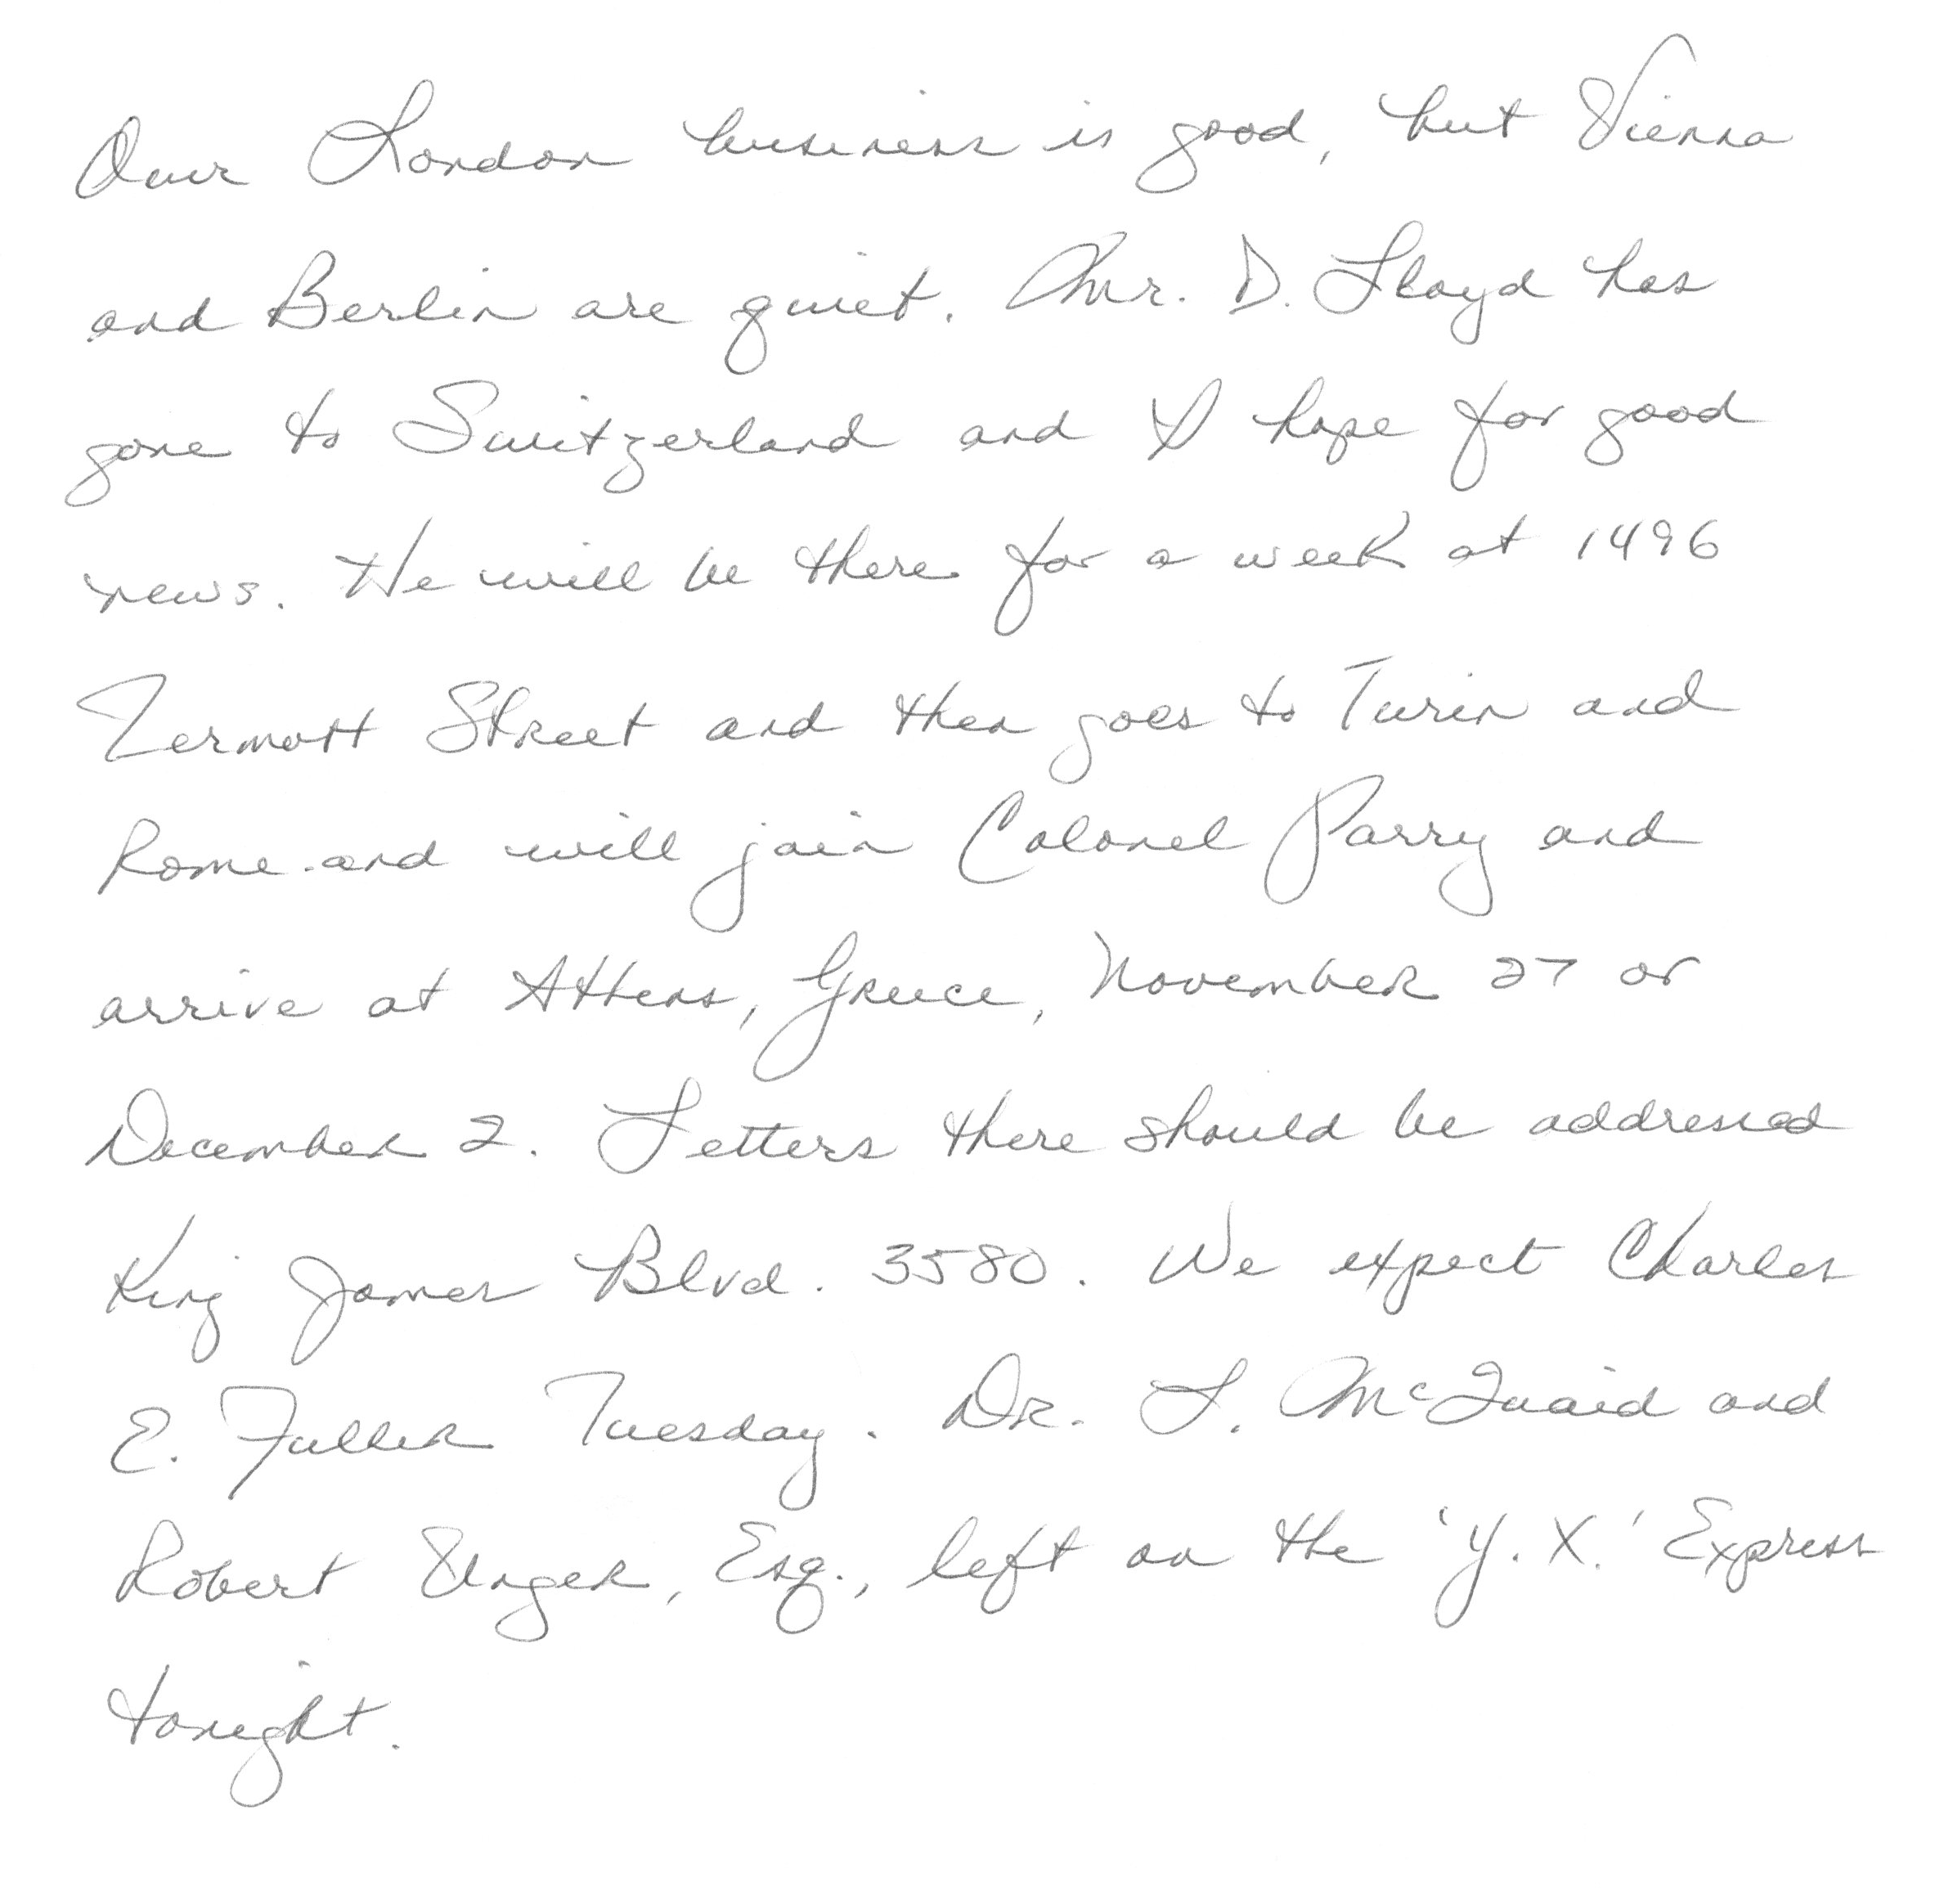 Our London business is good, but Vienna
and Berlin are quiet. Mr. D. Lloyd has
gone to Switzerland and I hope for good
news. He will be there for a week at 1496
Zermott Street and then goes to Turin and
Rome and will join Colonel Parry and
arrive at Athens, Greece, November 27 or
December 2. Letters there should be addressed
King James Blvd. 3580. We expect Charles
E. Fuller Tuesday. Dr. L. McQuaid and
Robert Unger, Esq., left on the 'Y. X.' Express
tonight.